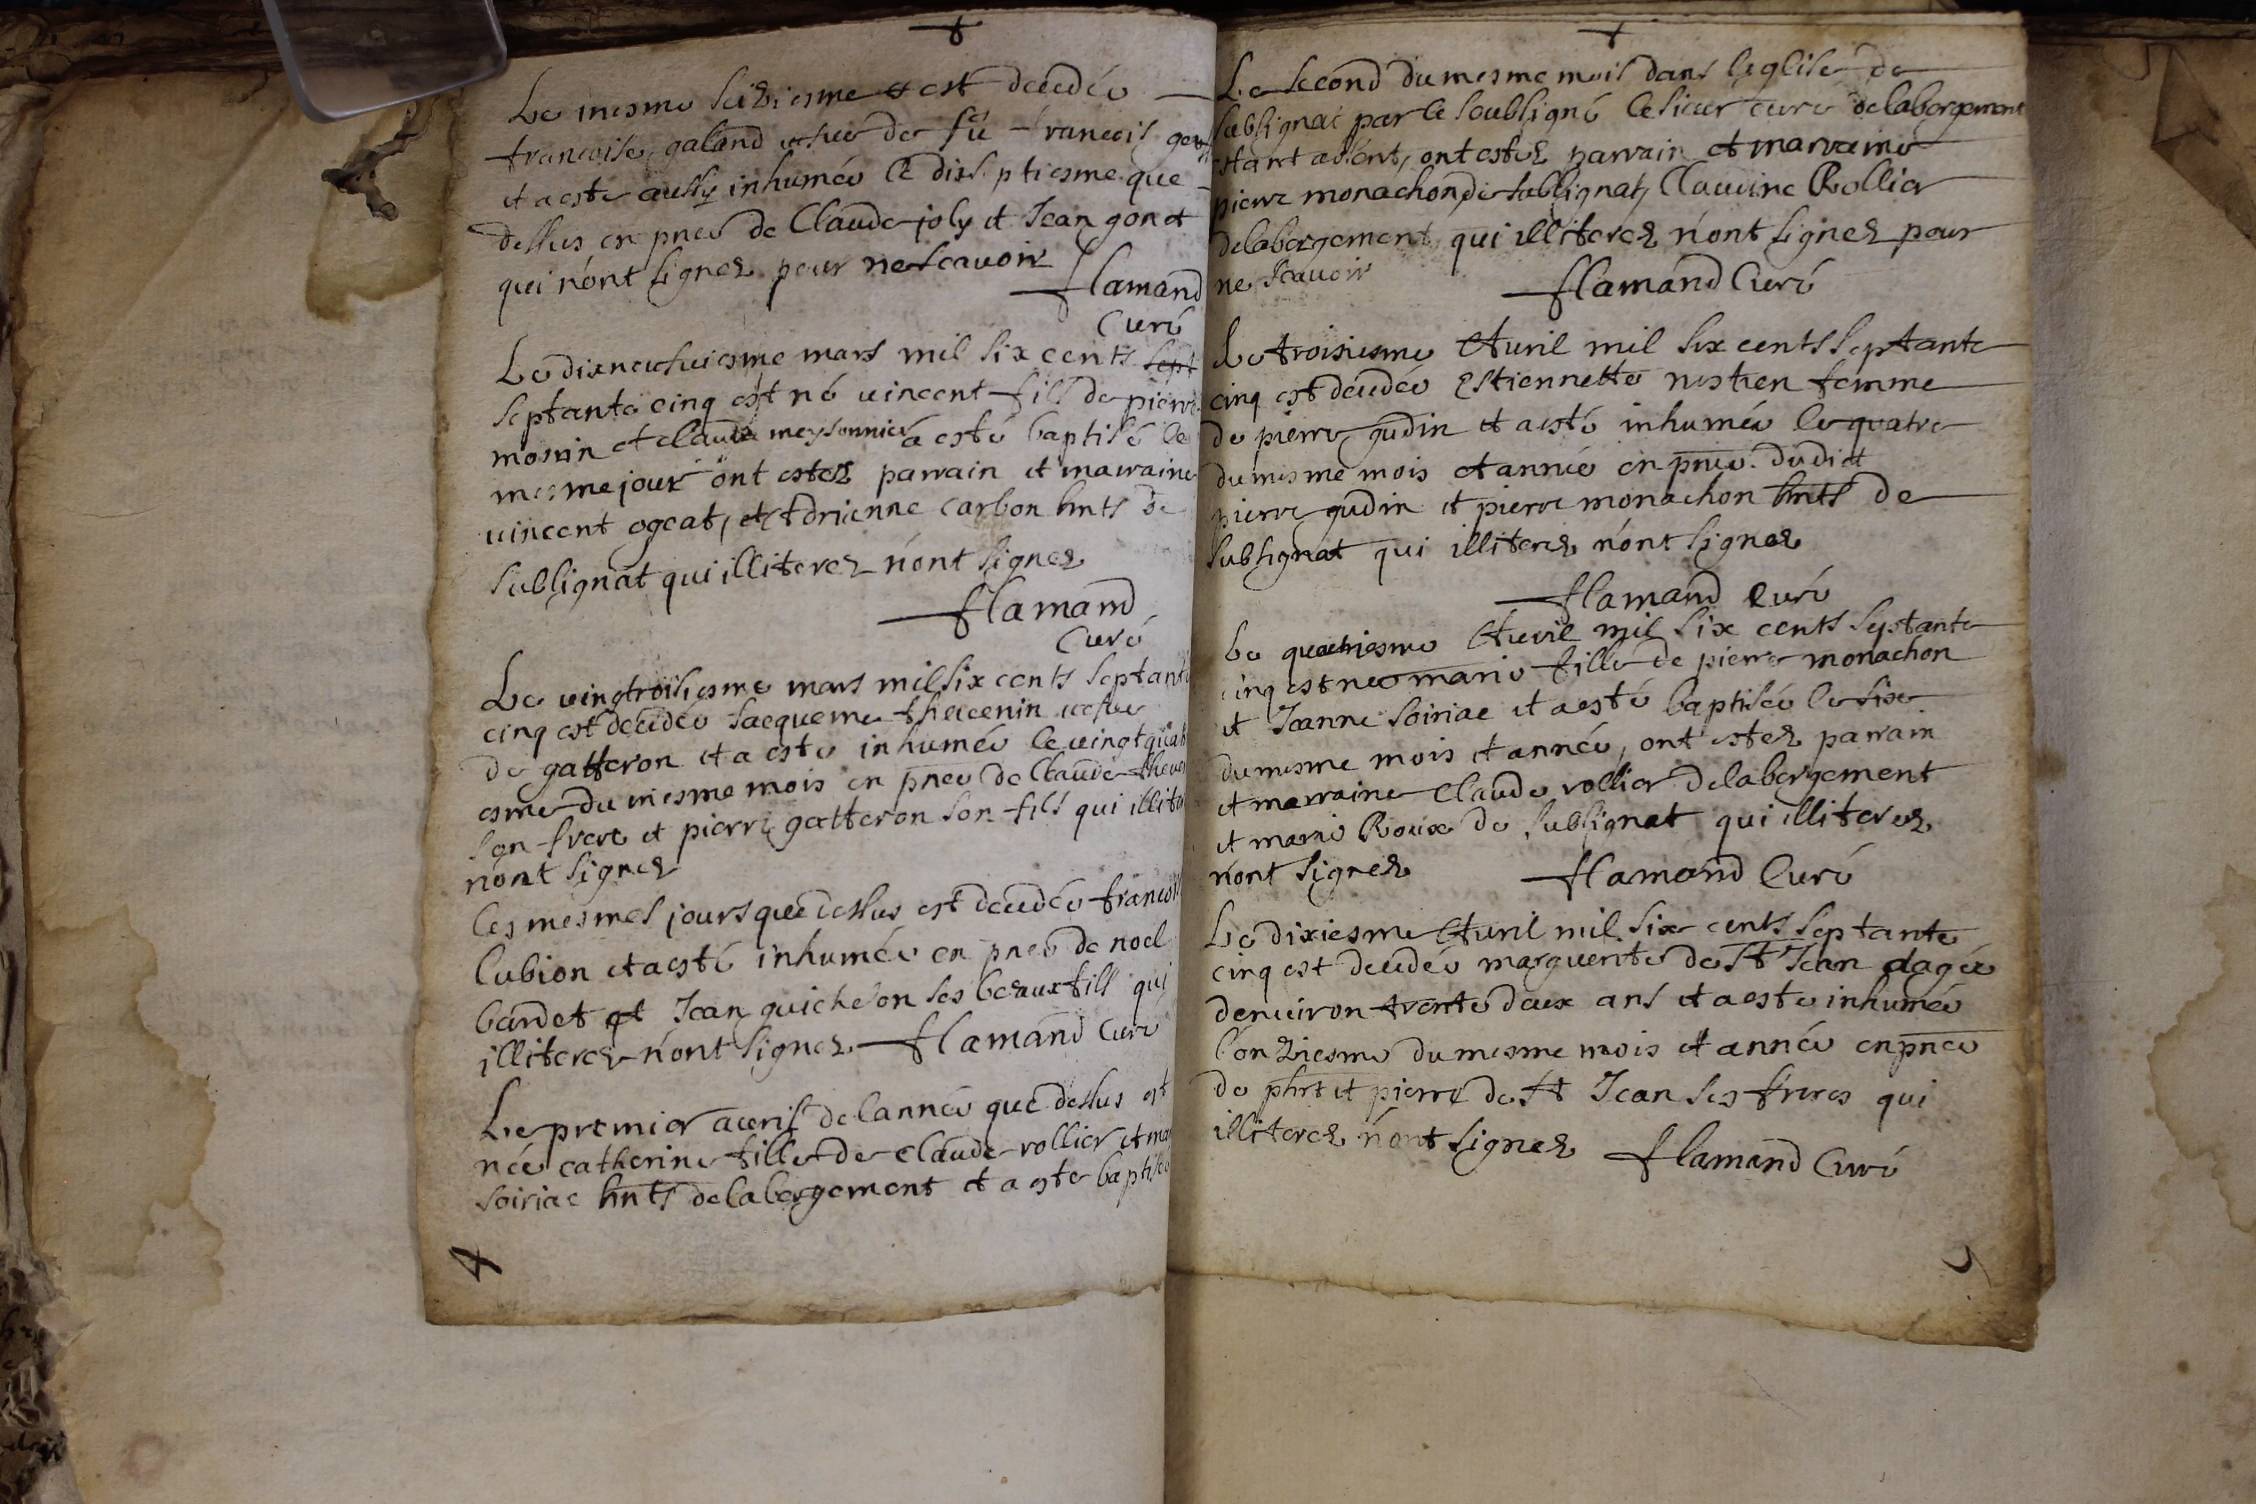 Le mesme seiziesme est decedée
francoise galand vefve de fû francois
et a esté aussy inhumée le dixseptiesme que
dessus en pnce de Claude joly et Jean gonet
qui n'ont signez pour ne scavoir
flamand
Curé
Le dixneufuiesme mars mil six cents sept
septante cinq est né vincent fils de pierre
morin et claude meysonnier a esté baptisé le
mesme jour ont estez parrain et marraine
vincent ogeat, et Adrienne carbon hnts de
sublignat qui illiterez n'ont signez
flamand
Curé
Le vingtroisiesme mars mil six cents septante
cinq est decedée Jacqueme thevenin vefve
de gatteron et a esté inhumée le vingt quatr
esme du mesme mois en pnce de Claude theven
son frere et pierre gatteron son fils qui illite
n'ont signez
Les mesmes jours que dessus est decedée francoise
Cubion et a esté inhumée en pnce de noel
bardet et Jean guichenon ses beaux fils qui
illiterez n'ont signez flamand Curé
Le premier avril de l'année que dessus est
née catherine fille de claude rollier et mar
soiriae hnts delabergement et a esté baptisée
Le second du mesme mois dans l'eglise de
sublignat par le soubsigné le sieur curé delabergement
estant absent, ont estez parrain et marraine
pierre monachon de sublignat, Claudine Rollier
delabergement qui illiterez n'ont signez pour
ne scavoir
flamand Curé
Le troisiesme Avril mil six cents septante
cinq est decedée Estiennette mestren femme
de pierre gudin et a esté inhumée le quatre
du mesme mois et année en pnce dudict
pierre gudin et pierre monachon hnts de
sublignat qui illiterez n'ont signez
flamand Curé
Le quatriesme Avril mil six cents septante
cinq est née marie fille de pierre monachon
et Jeanne soiriae et a esté baptisée le sixe
du mesme mois et année, ont estez parrain
et marraine Claude rollier delabergement
et marie Roux de sublignat qui illiterez
n'ont signez flamand Curé
Le dixiesme Avril mil six cents septante
cinq est decedée marguerite de St Jean dagée
denviron trente deux ans et a esté inhumée
l'onziesme du mesme mois et année en pnce
de phrt et pierre de St Jean ses freres qui
illiterez n'ont signez flamand Curé